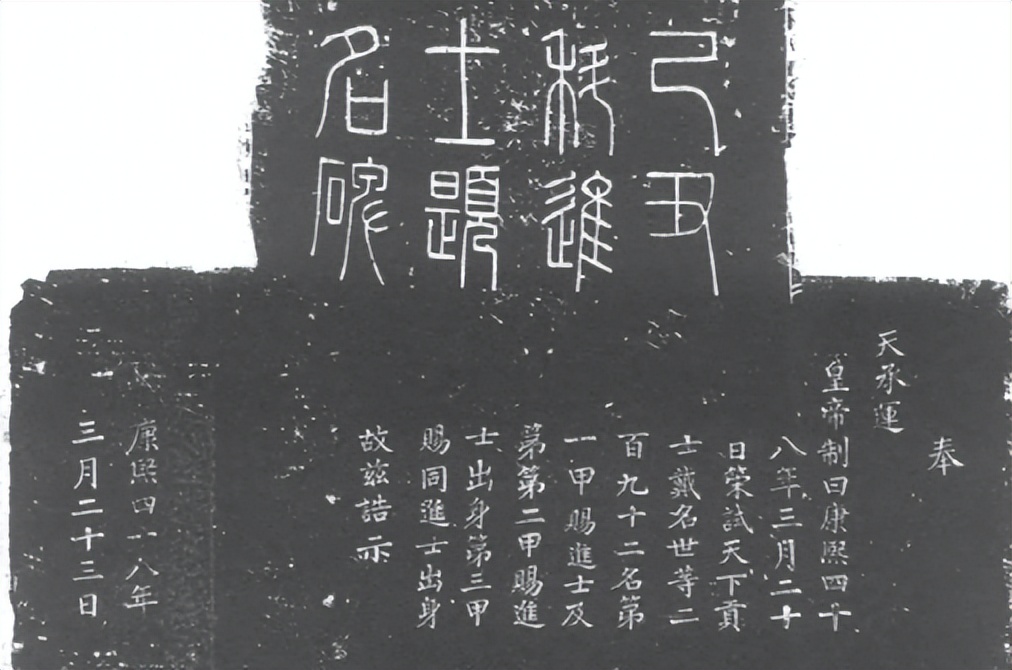 己丑
科進
士題
名碑
奉
天承運
皇帝制曰康熙四十
八年三月二十
日策試天下貢
士戴名世等二
百九十二名第
一甲賜進士及
第第二甲賜進
士出身第三甲
賜同進士出身
故茲誥示
康熙四十八年
三月二十三日